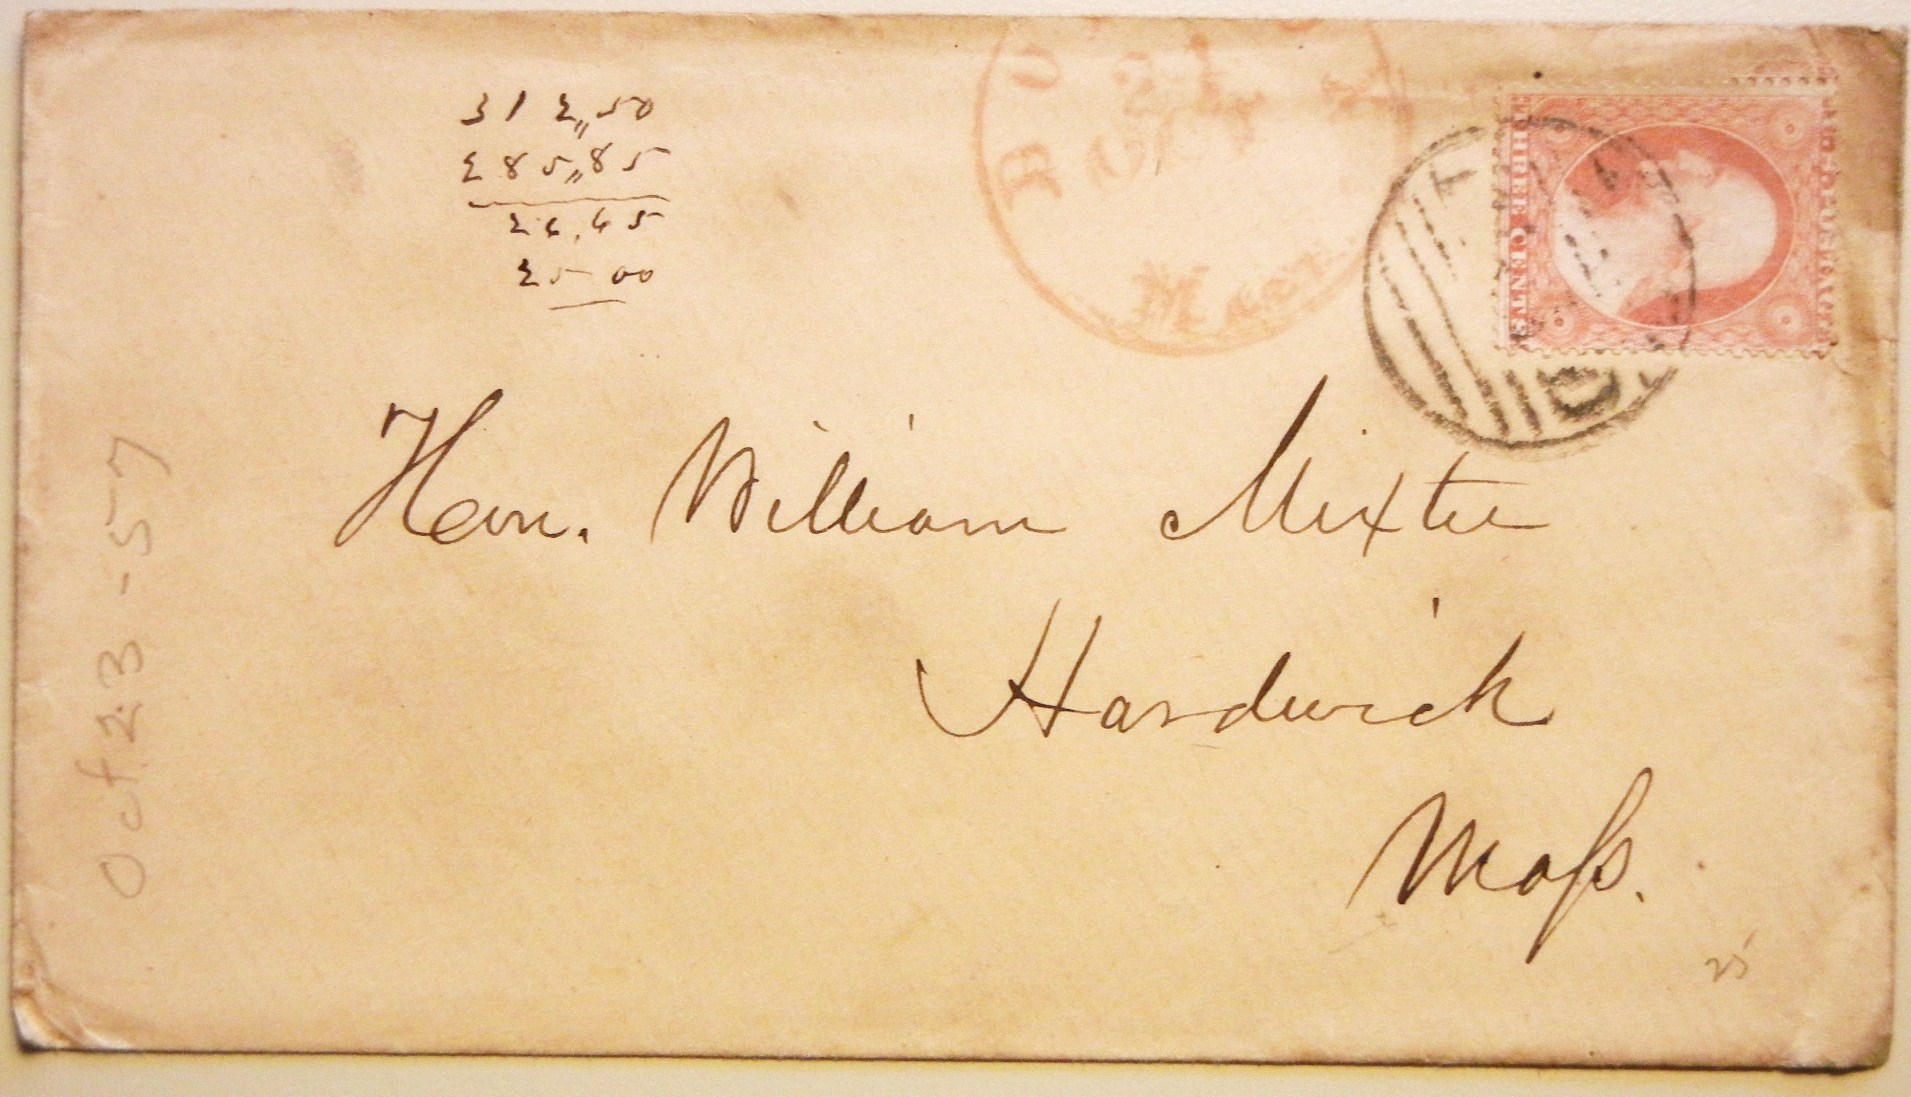 312„50
285„85
26.65
25 00
23
OCT
Mass.
PAID
THREE CENTS
Hon. William Mixter
Hardwick
Mass.
Oct. 23-57
25